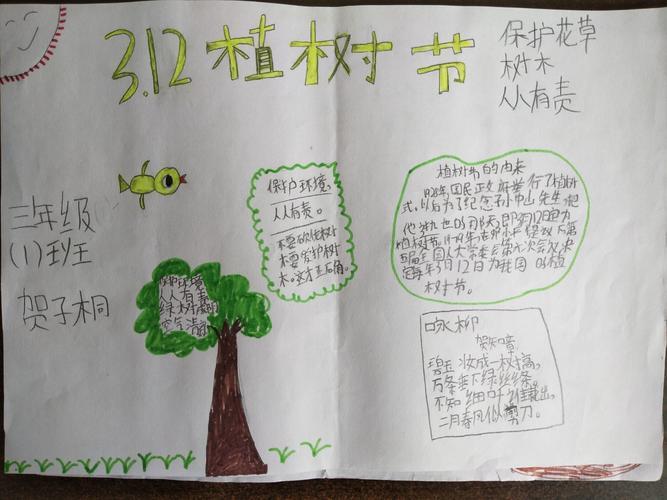 3.12植树节
保护花草
树木
人人有责
三年级
(1)班
贺子桐
保护环境,
人人有责。
不要砍伐树
木要爱护树
木。这才正
保护环境
人人有责
绿树
空气清新
植树节的由来
1928年,国民政府举行了植树
式,以后为了纪念孙中山先生,把
他逝世的
植树节。1979年
全国人大常委会第六次会议决
定每年3月12日为我国的植
树节。
咏柳
贺知章
碧玉妆成一树高,
万条垂下绿丝绦。
不知细叶谁裁出,
二月春风似剪刀。